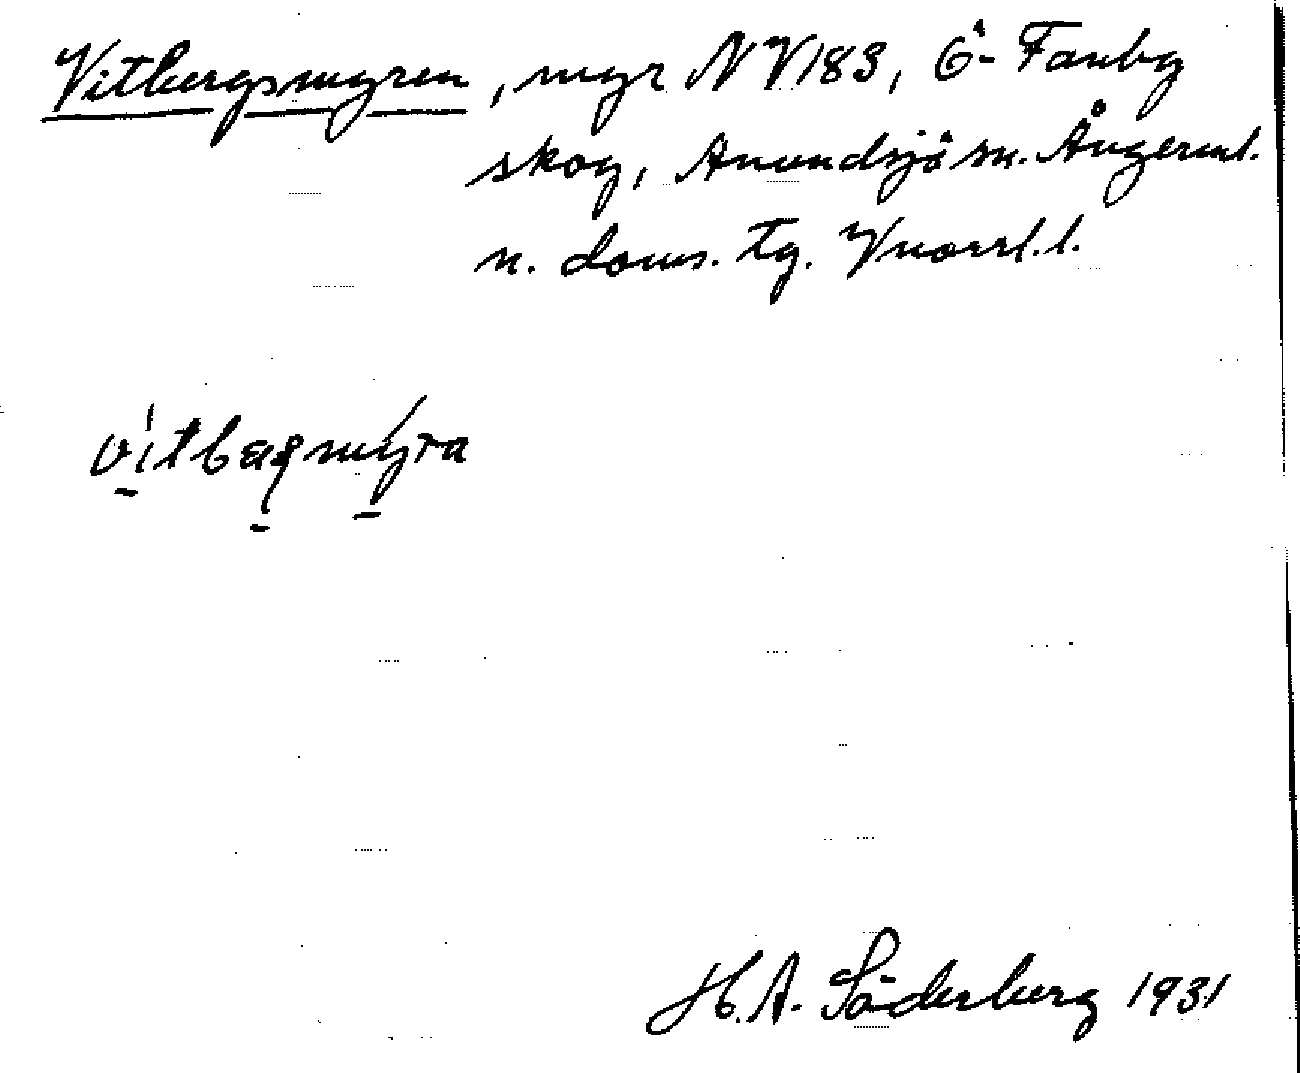 Vitbergsmyren, myr NV183, Ö-Fanbg
skog, Anundsjö sn. Ångerml.
n. doms. tg. Vnorrl. l.
vitbaʂmyra
H. A. Söderberg 1931